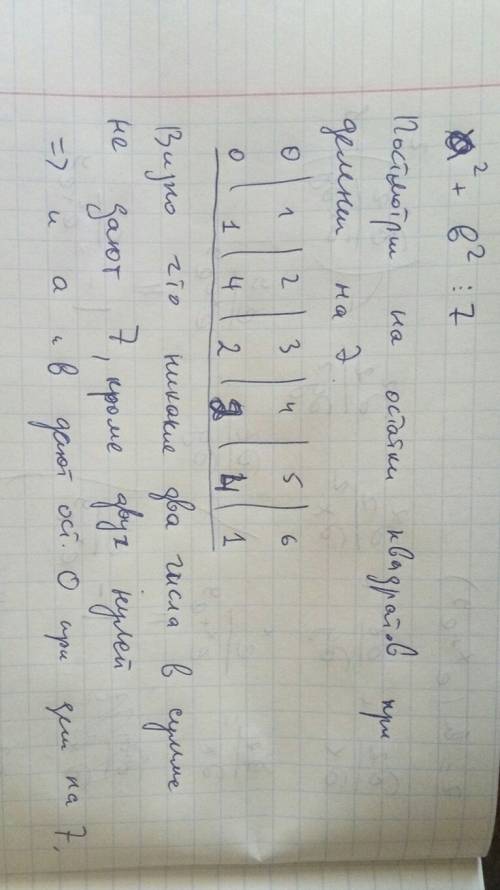 a² + b² ⋮ 7
Посмотрим на остатки квадратов при
делении на 7.
0 | 1 | 2 | 3 | 4 | 5 | 6
0 | 1 | 4 | 2 | 2 | 4 | 1
Видно что никакие два числа в сумме
не дают 7, кроме двух нулей
=> и a и в дают ост. 0 при дел на 7,